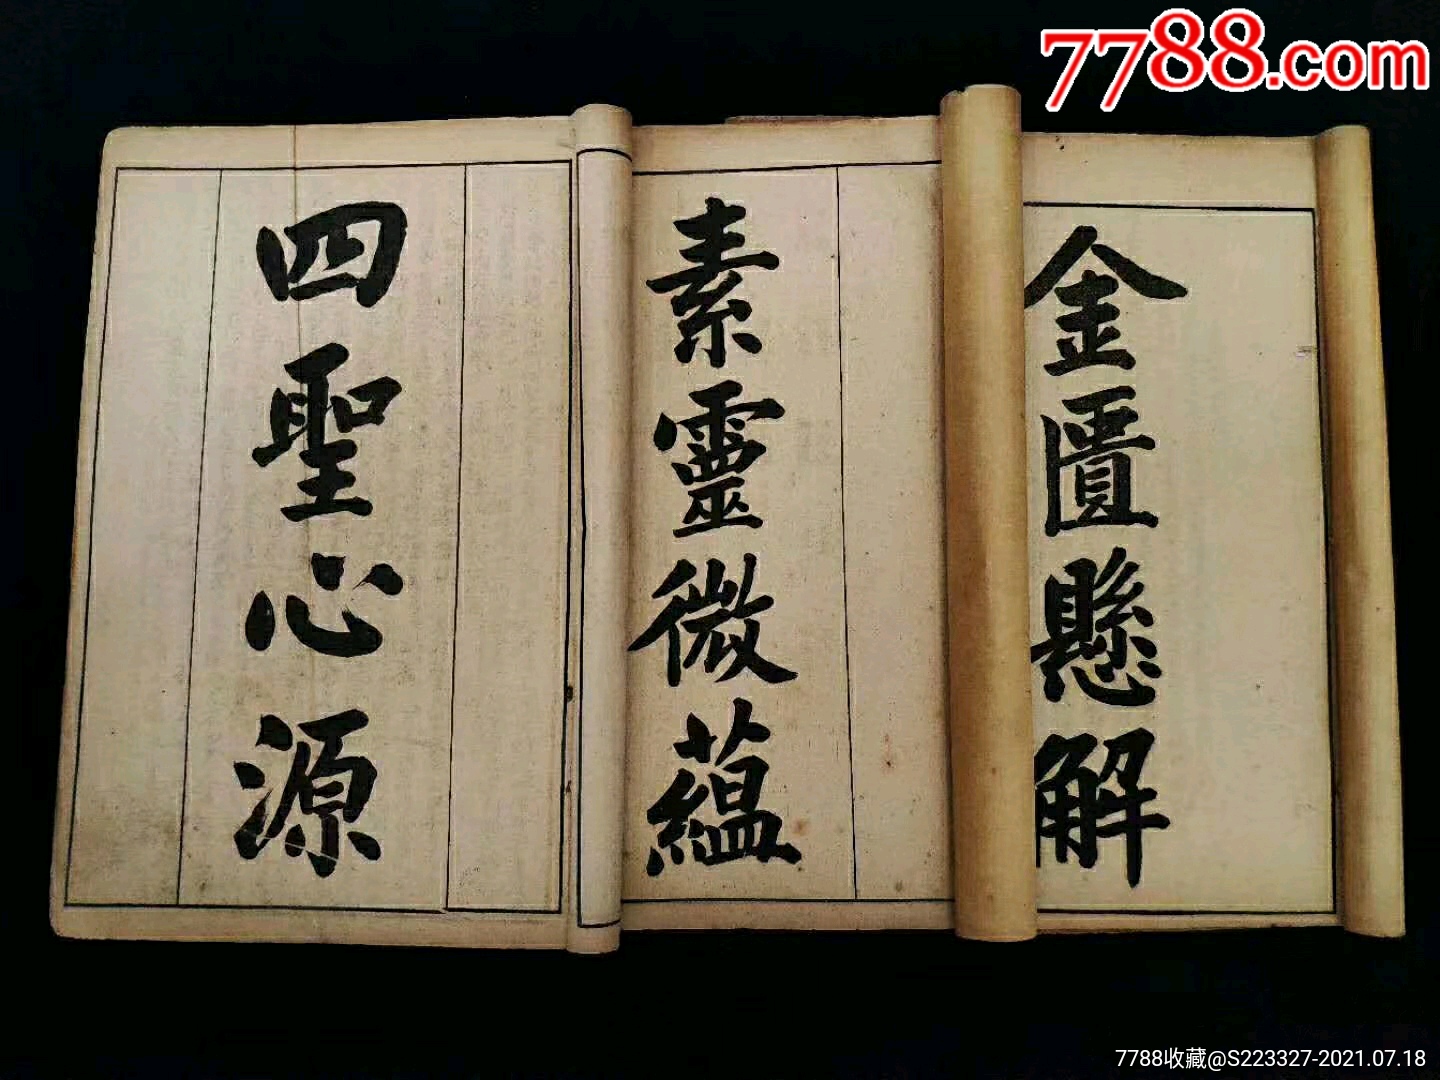 7788.com
四聖心源
素靈微蘊
金匱懸解
7788收藏@S223327-2021.07.18